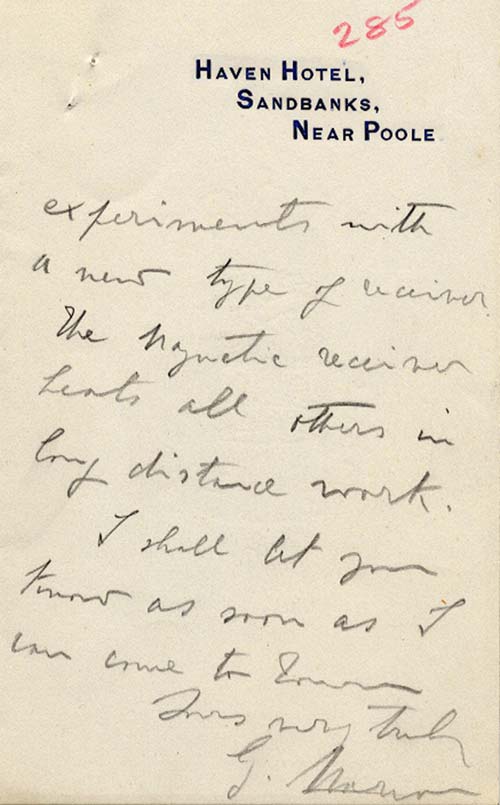 285
HAVEN HOTEL,
SANDBANKS,
NEAR POOLE
experiments with
a new type of receiver.
The Magnetic receiver
beats all others in
long distance work.
I shall let you
know as soon as I
can come to Town
Yours very truly
G. Marconi